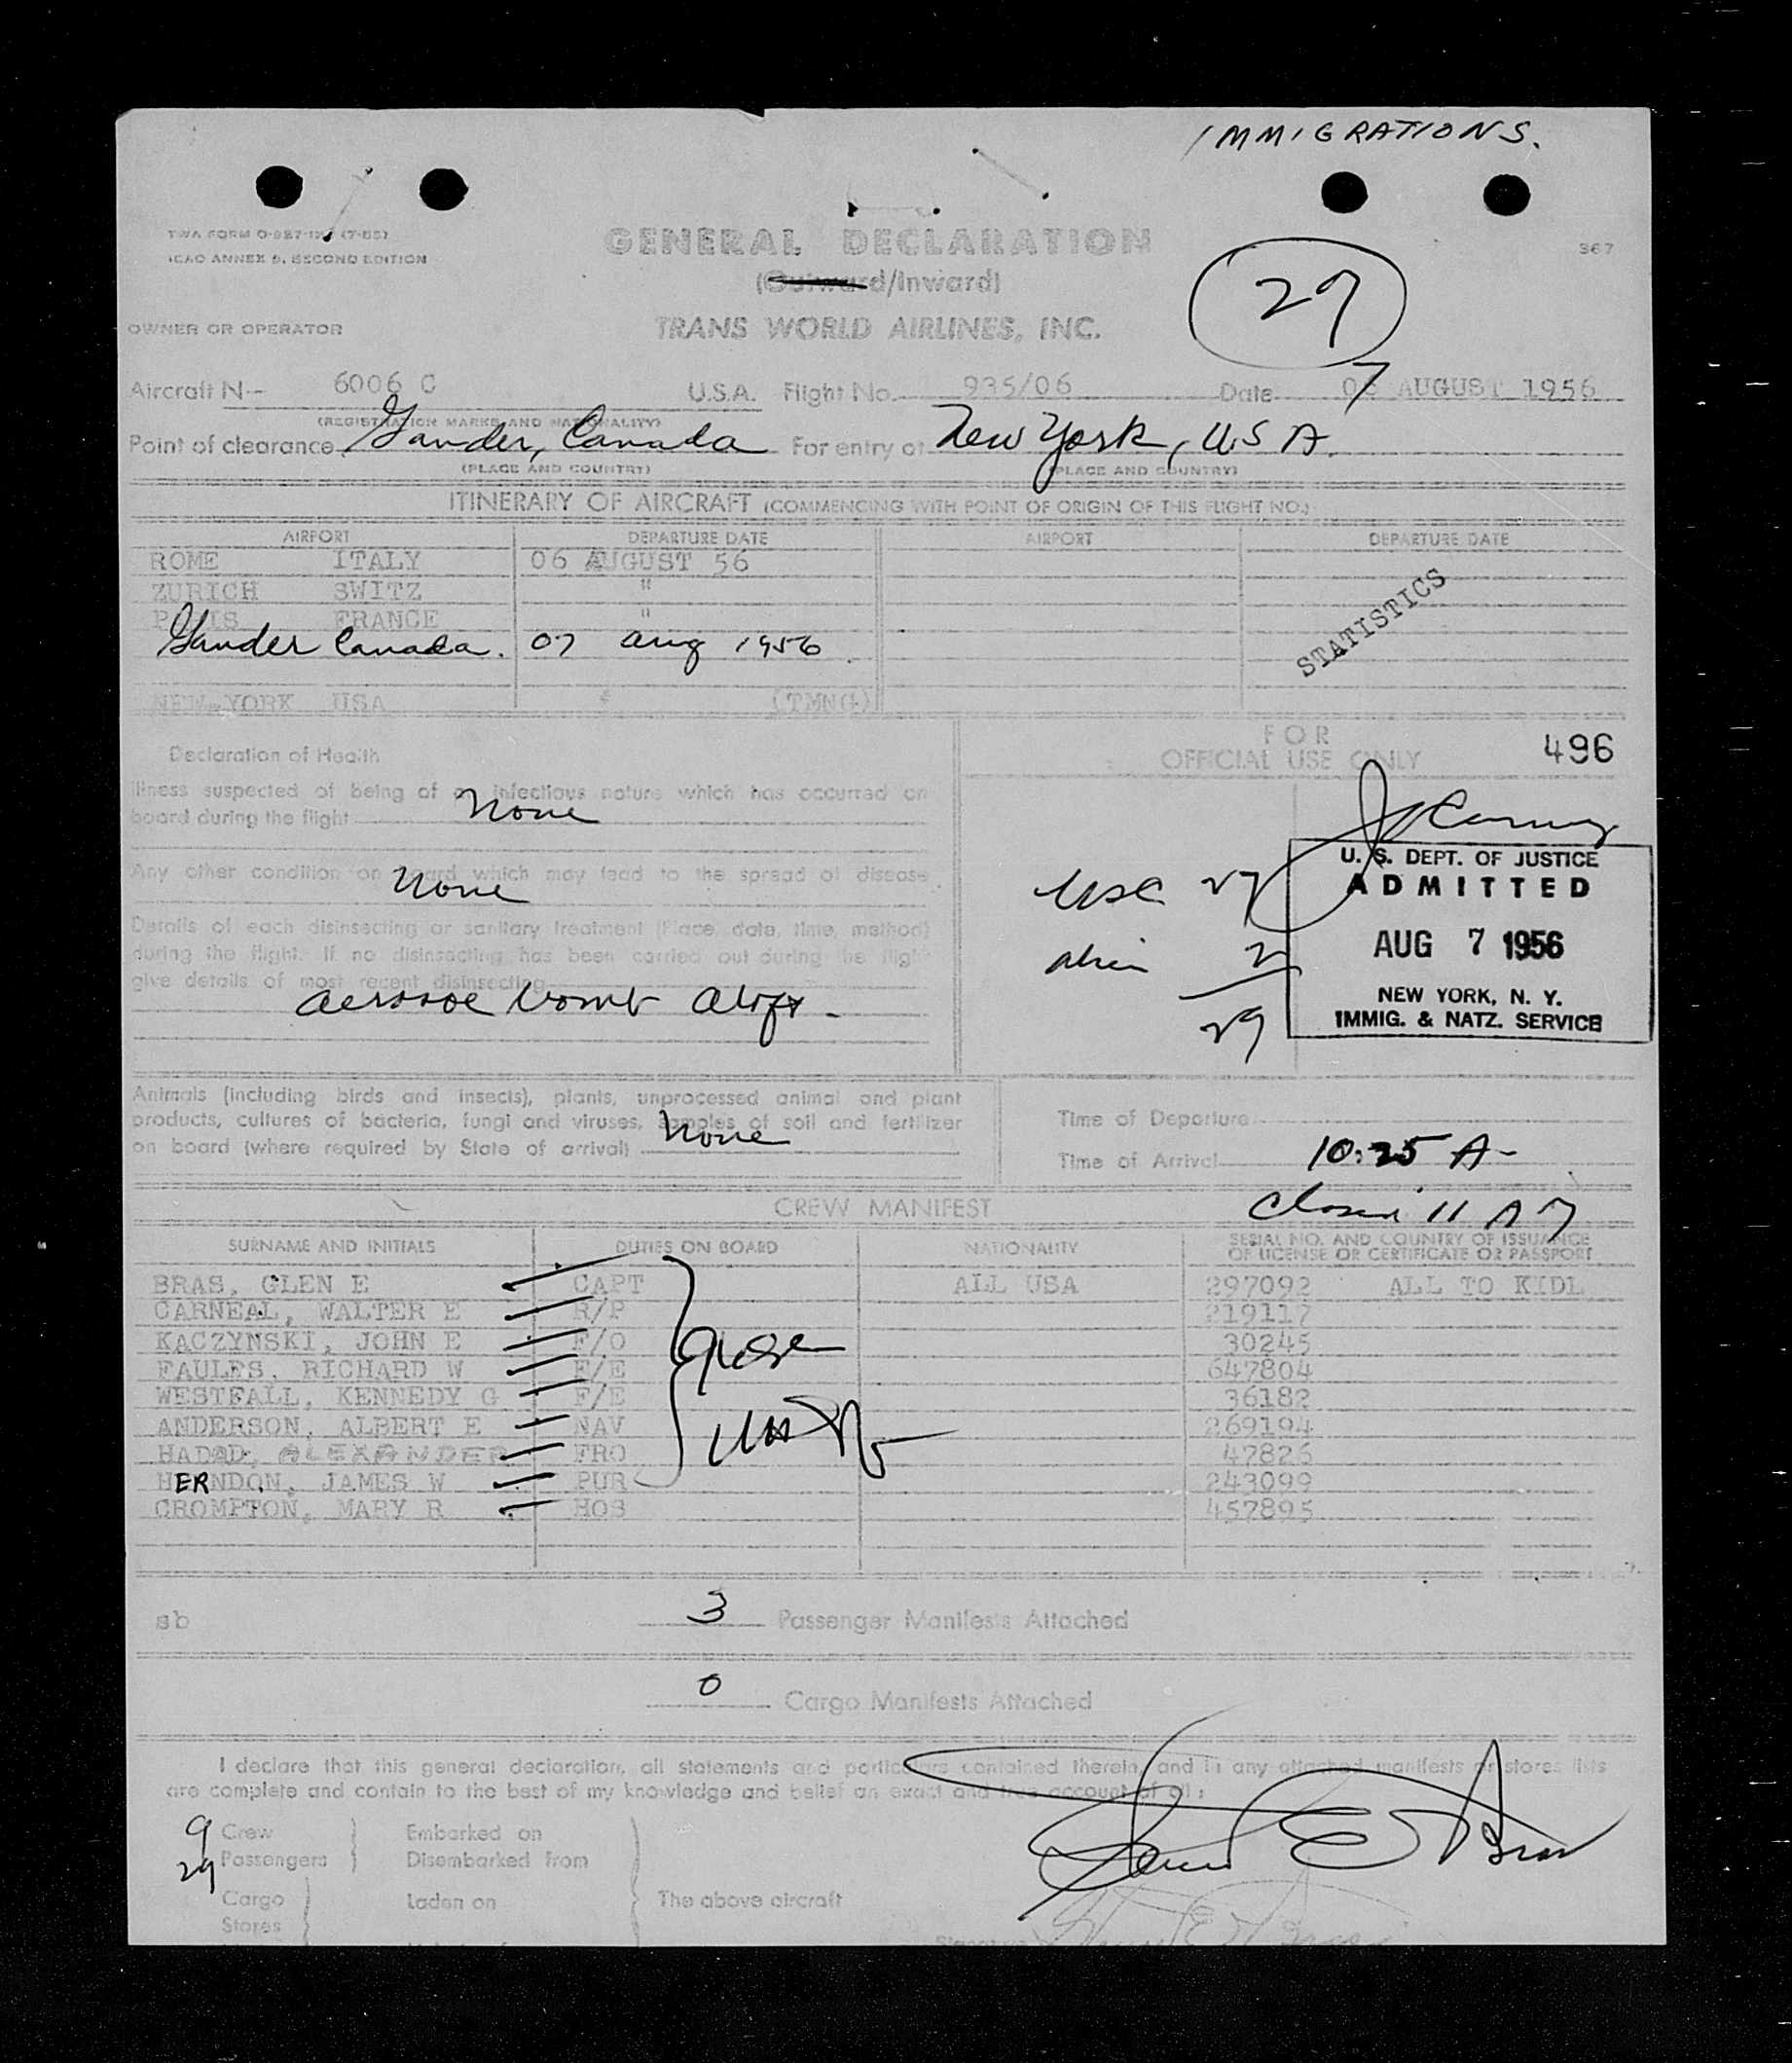 IMMIGRATIONS.
TWA FORM O-927- (7-55)
ICAO ANNEX 9, SECOND EDITION
GENERAL DECLARATION
367
(Outward/Inward)
29
OWNER OR OPERATOR
TRANS WORLD AIRLINES, INC.
Aircraft N- 6006 C U.S.A. Flight No. 935/06 Date 07 AUGUST 1956
(REGISTRATION MARKS AND NATIONALITY)
Point of clearance Gander, Canada For entry at New York, U S A.
(PLACE AND COUNTRY) (PLACE AND COUNTRY)
ITINERARY OF AIRCRAFT (COMMENCING WITH POINT OF ORIGIN OF THIS FLIGHT NO.)
AIRPORT DEPARTURE DATE AIRPORT DEPARTURE DATE
ROME ITALY 06 AUGUST 56
ZURICH SWITZ "
PARIS FRANCE "
Gander Canada. 07 Aug 1956
STATISTICS
NEW YORK USA (TMNG)
FOR
OFFICIAL USE ONLY
496
Declaration of Health
Illness suspected of being of an infectious nature which has occurred on
board during the flight None
Any other condition on board which may lead to the spread of disease
None
Details of each disinsecting or sanitary treatment (Place, date, time, method)
during the flight. If no disinsecting has been carried out during the flight
give details of most recent disinsecting
aerosol bomb aloft -
USC 27
alien 2
29
U. S. DEPT. OF JUSTICE
ADMITTED
AUG 7 1956
NEW YORK, N. Y.
IMMIG. & NATZ. SERVICE
Animals (including birds and insects), plants, unprocessed animal and plant
products, cultures of bacteria, fungi and viruses, samples of soil and fertilizer
on board (where required by State of arrival) None
Time of Departure
Time of Arrival 10:25 A-
CREW MANIFEST
SURNAME AND INITIALS DUTIES ON BOARD NATIONALITY SERIAL NO. AND COUNTRY OF ISSUANCE
OF LICENSE OR CERTIFICATE OR PASSPORT
BRAS, GLEN E CAPT ALL USA 297092 ALL TO KIDL
CARNEAL, WALTER E R/P 219117
KACZYNSKI, JOHN E F/O 30245
FAULES, RICHARD W F/E 647804
WESTFALL, KENNEDY G F/E 36182
ANDERSON, ALBERT E NAV 269194
HADAD, ALEXANDER FRO 47826
HERNDON, JAMES W PUR 243099
CROMPTON, MARY R HOS 457895
sb 3 Passenger Manifests Attached
0 Cargo Manifests Attached
I declare that this general declaration, all statements and particulars contained therein, and in any attached manifests or stores lists
are complete and contain to the best of my knowledge and belief an exact and true account of all:
9 Crew Embarked on
29 Passengers Disembarked from
Cargo Laden on The above aircraft
Stores
Signature